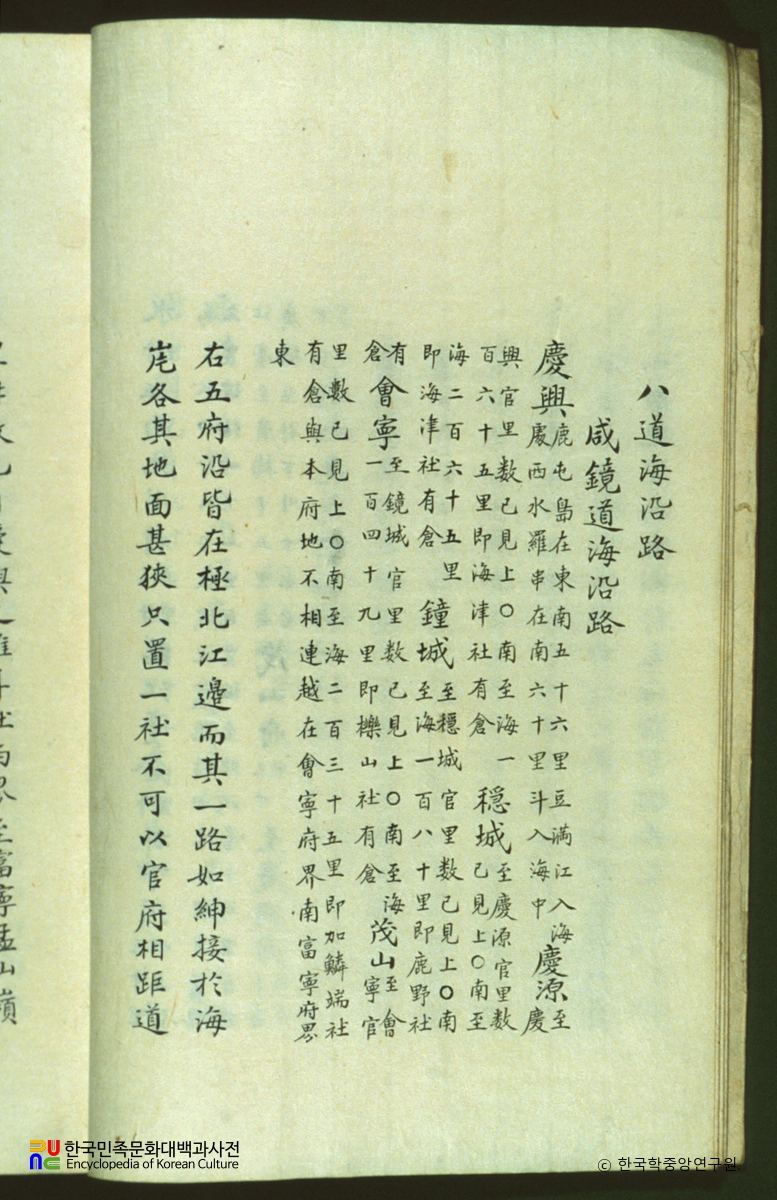 八道海沿路
咸鏡道海沿路
慶興鹿屯島在東南五十六里豆満江入海處西水羅串在南六十里斗入海中慶源至慶
興官里数已見上○南至海一百六十五里即海津社有倉穩城至慶源官里数已見上○南至
海二百六十五里即海津社有倉鐘城至穩城官里数已見上○南至海一百八十里即鹿野社
有倉會寧至鏡城官里数已見上○南至海一百四十九里即櫟山社有倉茂山至會寧官
里數已見上○南至海二百三十五里即加鱗端社有倉與本府地不相連越在會寧府界南富寧府界
東
右五府沿皆在極北江邉而其一路如紳接於海
各其地面甚狹只置一社不可以官府相距道
한국민족문화대백과사전
Encyclopedia of Korean Culture
© 한국학중앙연구원